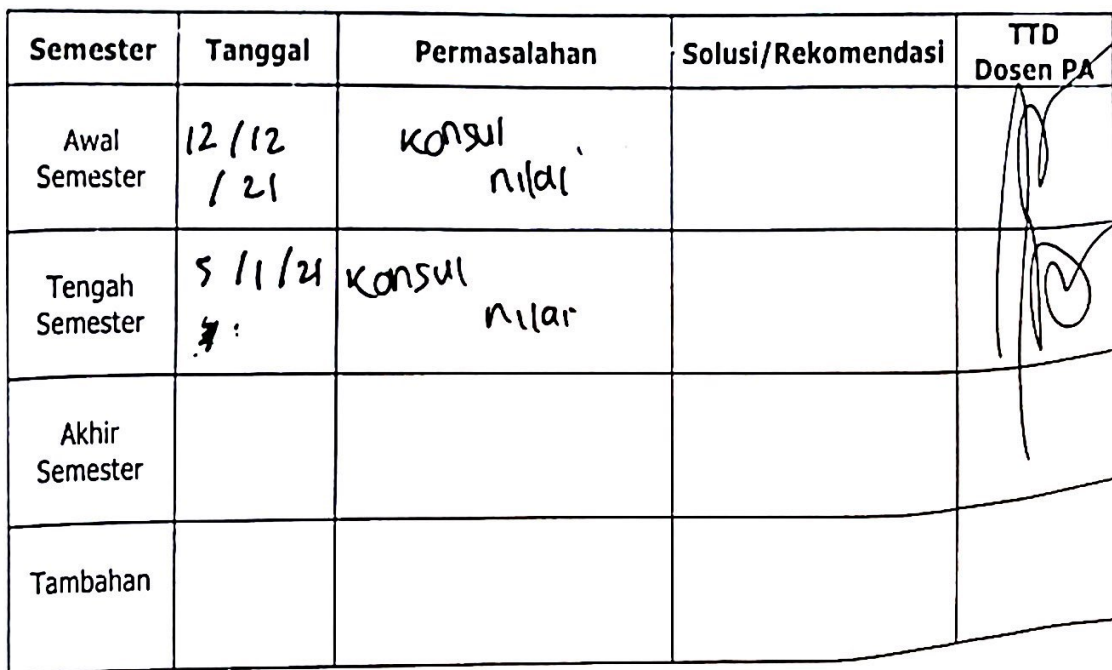 Semester Tanggal Permasalahan Solusi/Rekomendasi TTD Dosen PA
Awal Semester 12/12/21 Konsul nilai
Tengah Semester 5/1/21 Konsul nilai
Akhir Semester
Tambahan